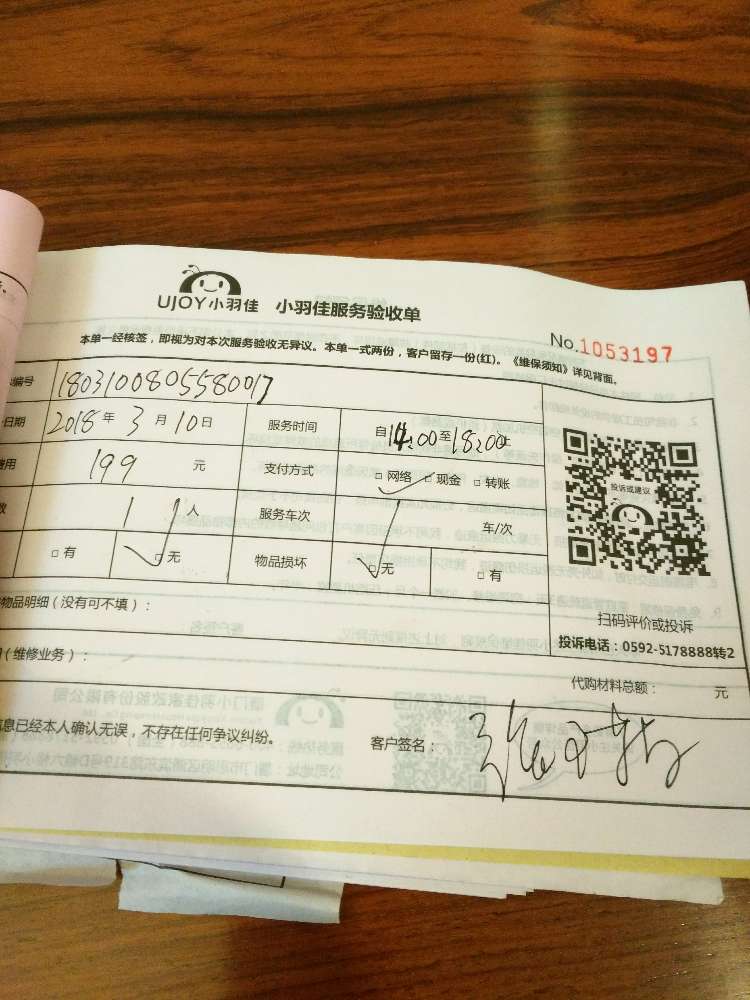 UJOY小羽佳 小羽佳服务验收单
No.1053197
本单一经核签，即视为对本次服务验收无异议。本单一式两份，客户留存一份(红)。《维保须知》详见背面。
编号 1803100805580017
日期 2018年3月10日 服务时间 自14:00至18:00止
用 199 元 支付方式 □网络 □现金 □转账
数 1 人 服务车次 车/次
□有 □无 物品损坏 □无 □有
投诉或建议
扫码评价或投诉
投诉电话：0592-5178888转2
物品明细（没有可不填）：
（维修业务）： 代购材料总额： 元
息已经本人确认无误，不存在任何争议纠纷。 客户签名：